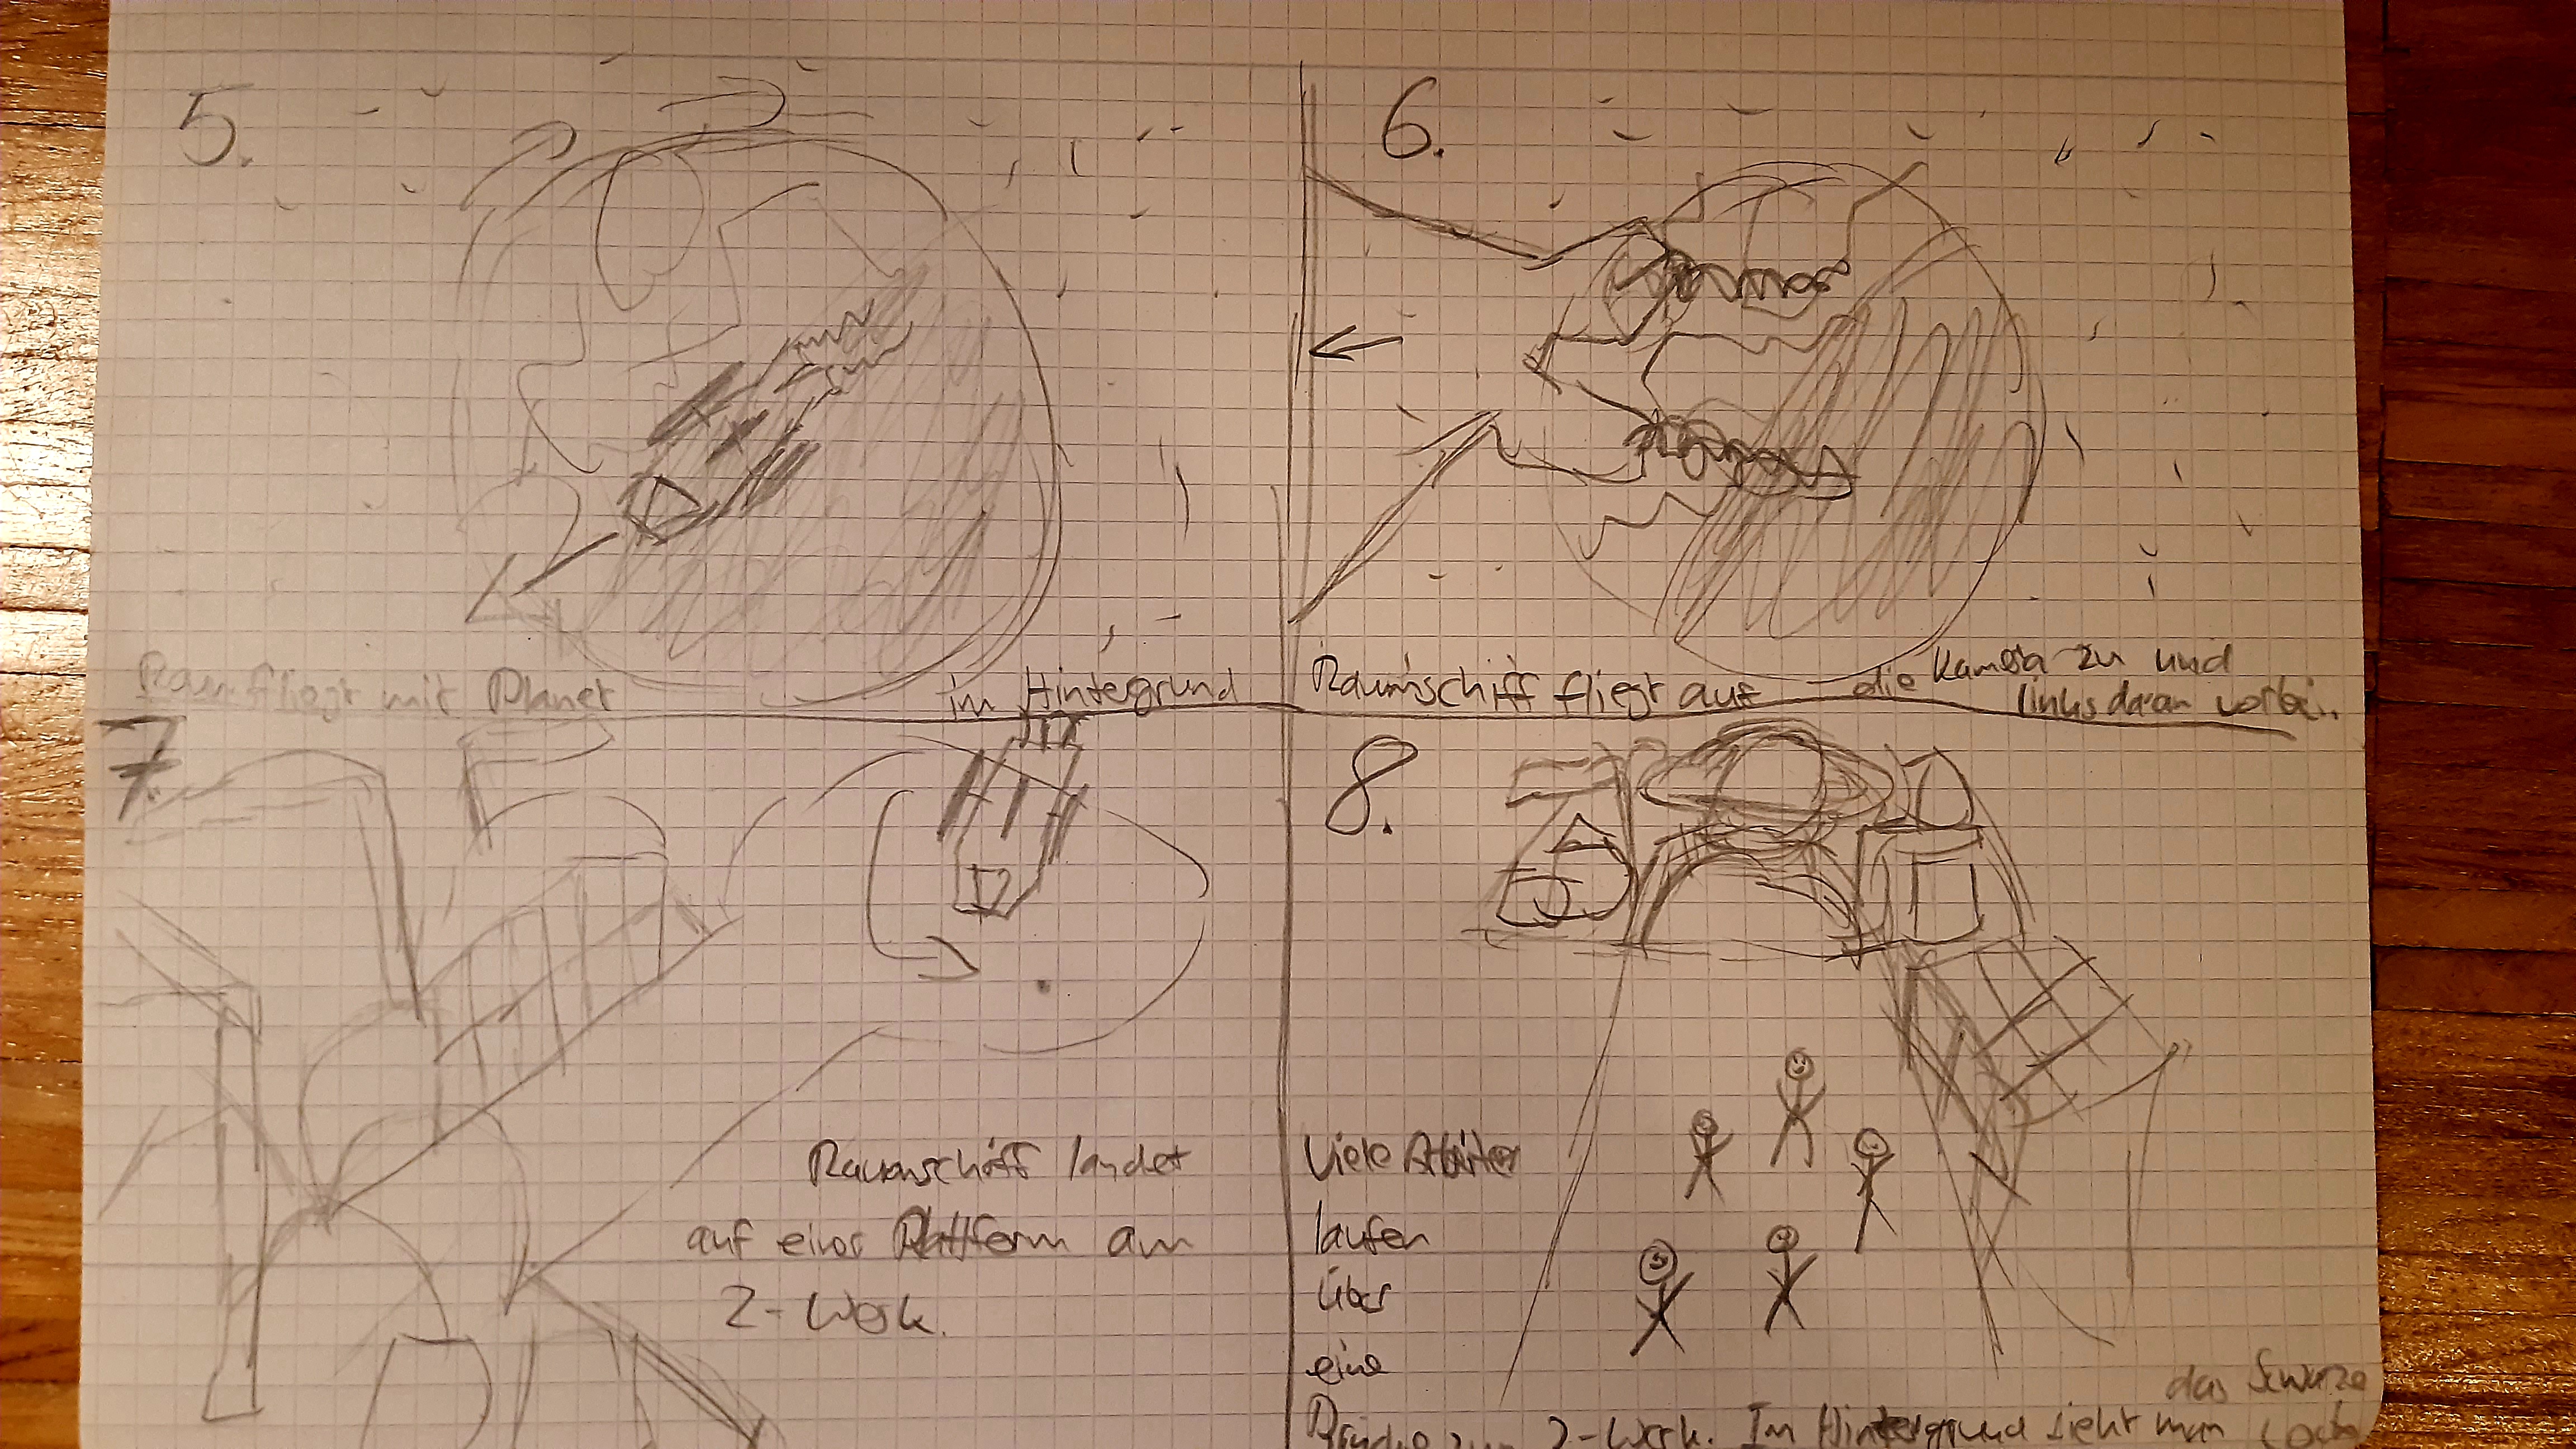 5.
Raum fliegt mit Planet im Hintergrund
6.
Raumschiff fliegt auf die Kamera zu und
links daran vorbei.
7.
Raumschiff landet
auf einer Plattform am
Z-Werk.
8.
Viele Arbeiter
laufen
über
eine
das Scwarze
Brücke zum Z-Werk. Im Hintergrund sieht man Loch